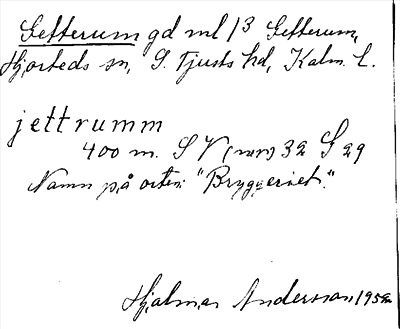 Getterum gd ml /3 Getterum,
Hjorteds sn, S. Tjusts hd, Kalm. l.
jettrumm
400 m. S V (nvr) 32 G 29
Namn på orten: "Bryggeriet".
Hjalmar Andersson 1958